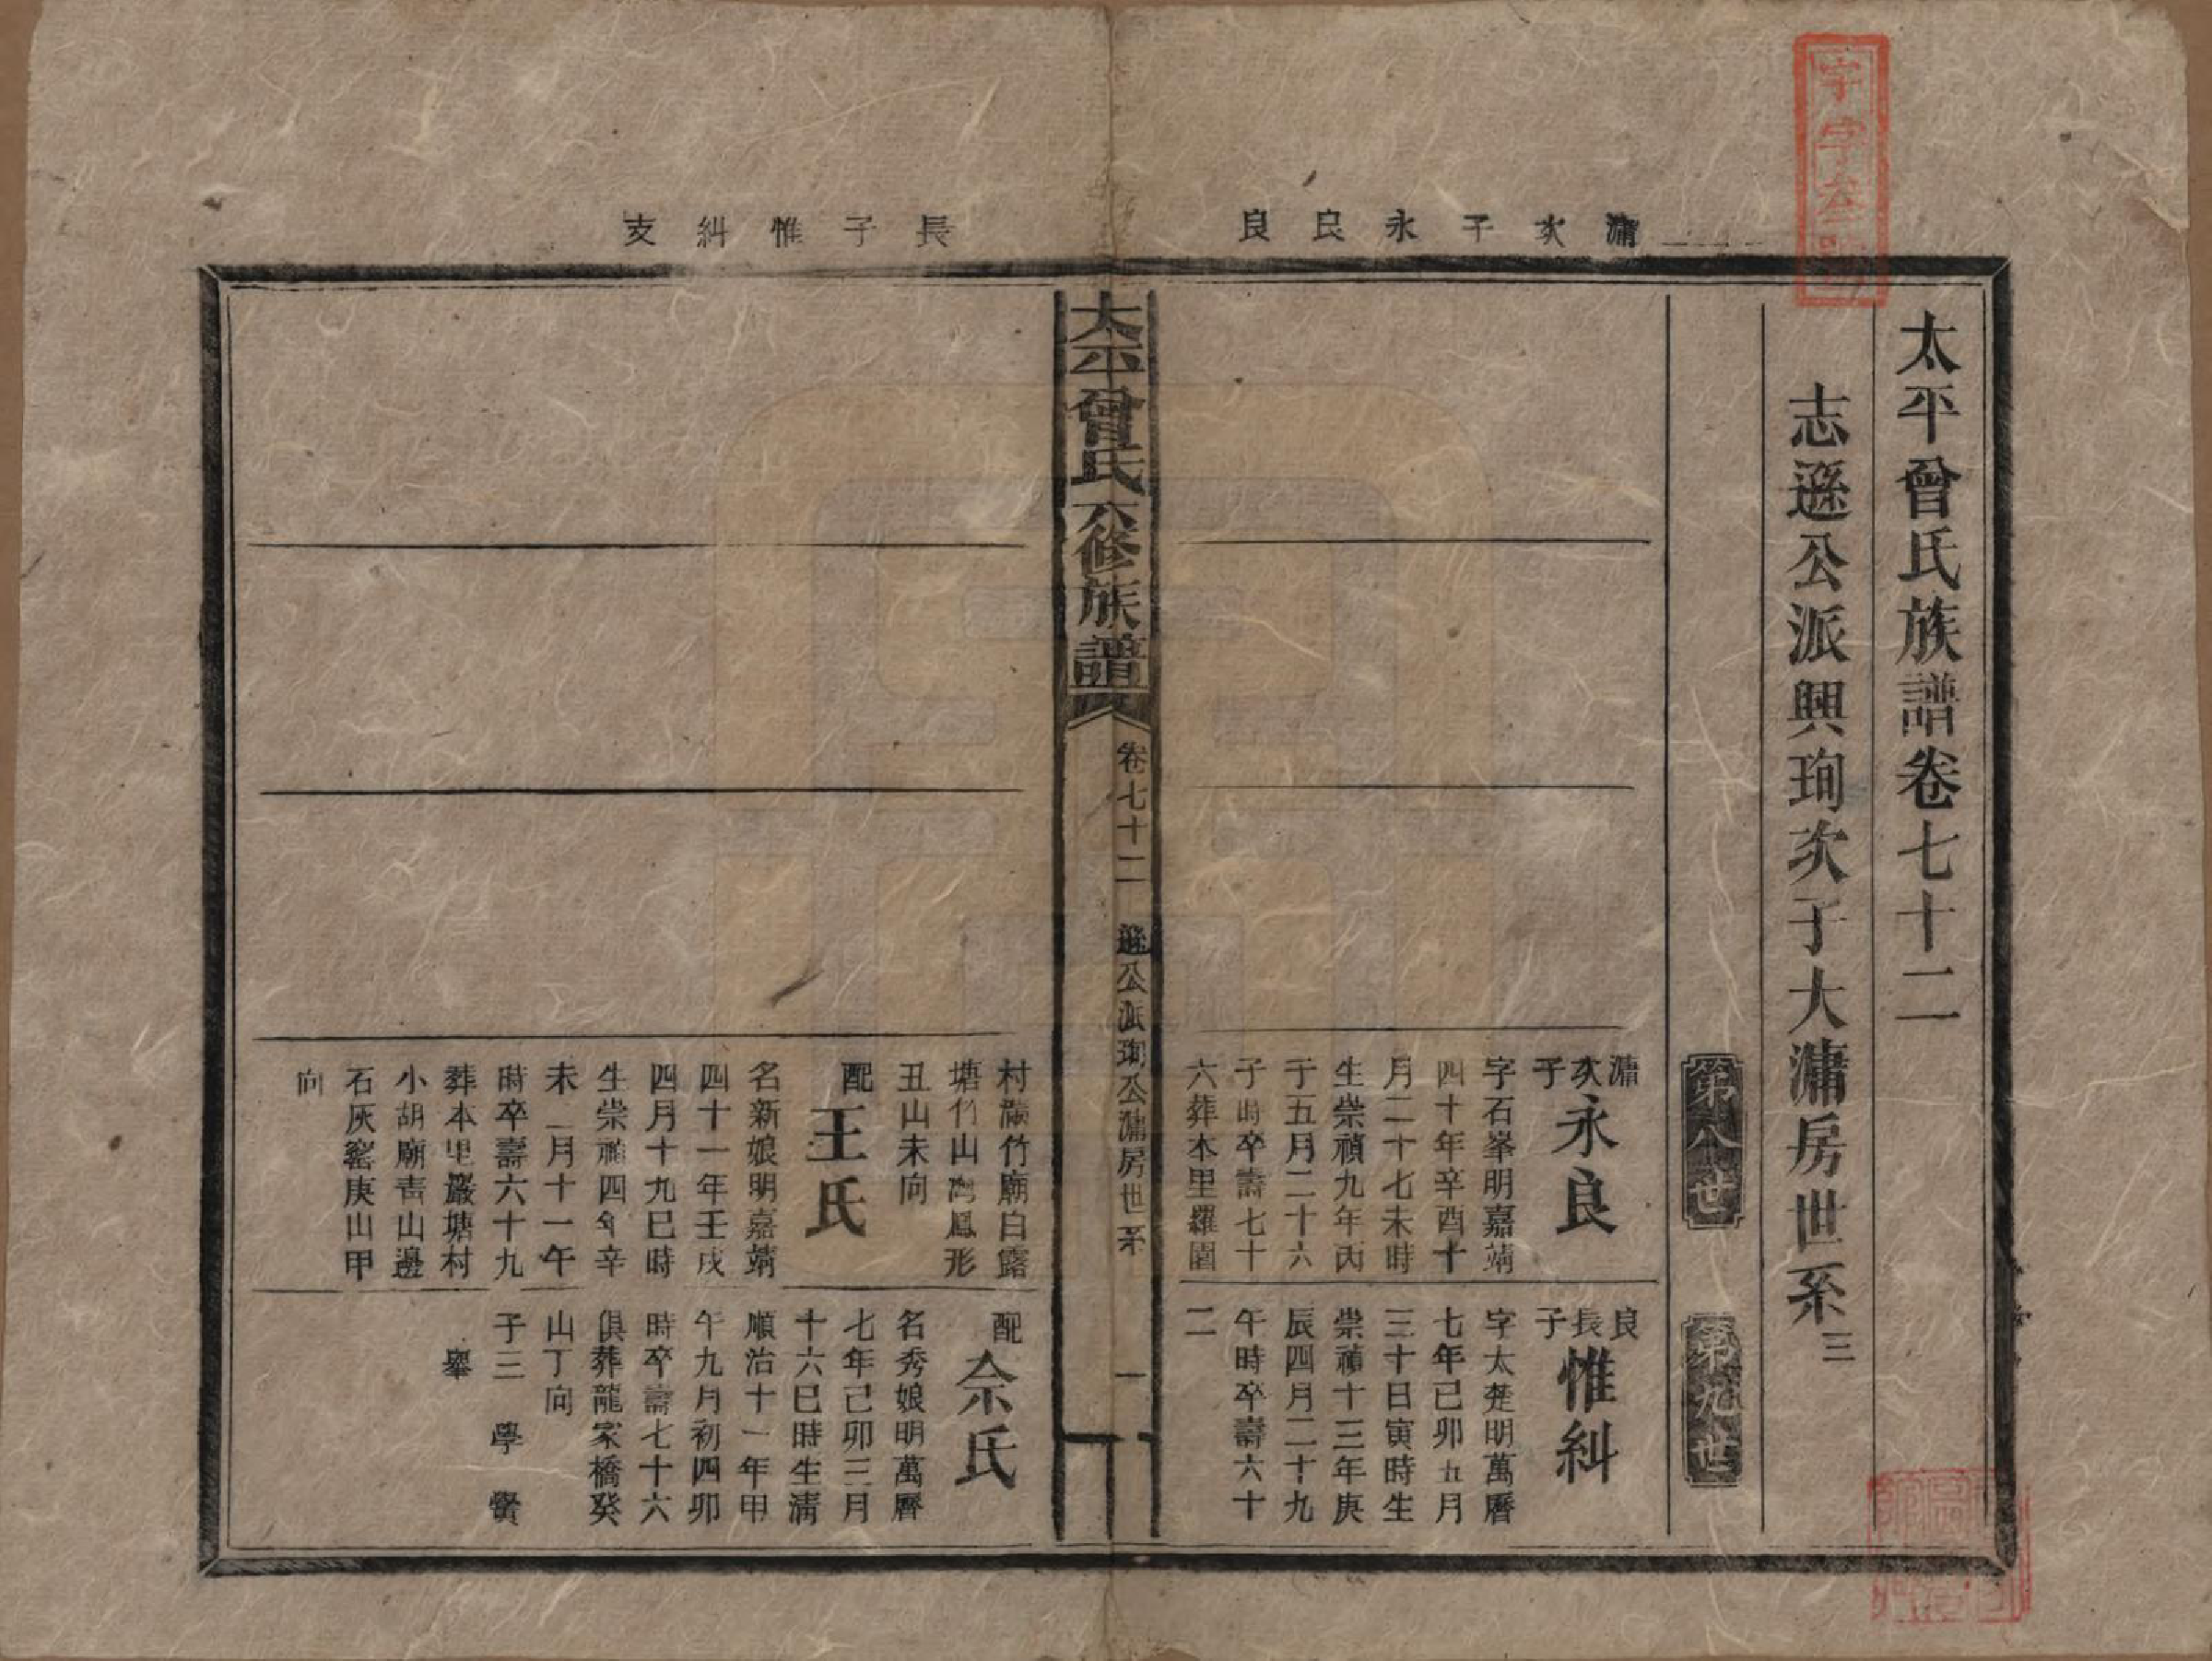 太平曾氏族譜卷七十二
志遜公派興珣次子大瀟房世系三
第八世
第九世
瀟次子永良
良
長子惟糾支
瀟次子
永良
字石峯明嘉靖
四十年辛酉十
月二十七未時
生崇禎九年丙
子五月二十六
子時卒壽七十
六葬本里羅園
村灝竹廟白露
塘竹山灣鳳形
丑山未向
配
王氏
名新娘明嘉靖
四十一年壬戌
四月十九巳時
生崇禎四年辛
未二月十一午
時卒壽六十九
葬本里巖塘村
小胡廟青山邊
石灰窰庚山甲
向
良長子
惟糾
字太楚明萬曆
七年己卯五月
三十日寅時生
崇禎十三年庚
辰四月二十九
午時卒壽六十
二
配
佘氏
名秀娘明萬曆
七年己卯三月
十六巳時生清
順治十一年甲
午九月初四卯
時卒壽七十六
俱葬龍家橋癸
山丁向
子三 學 賢
舉
太平曾氏八修族譜
卷七十二
遜公派珣公瀟房世系
一